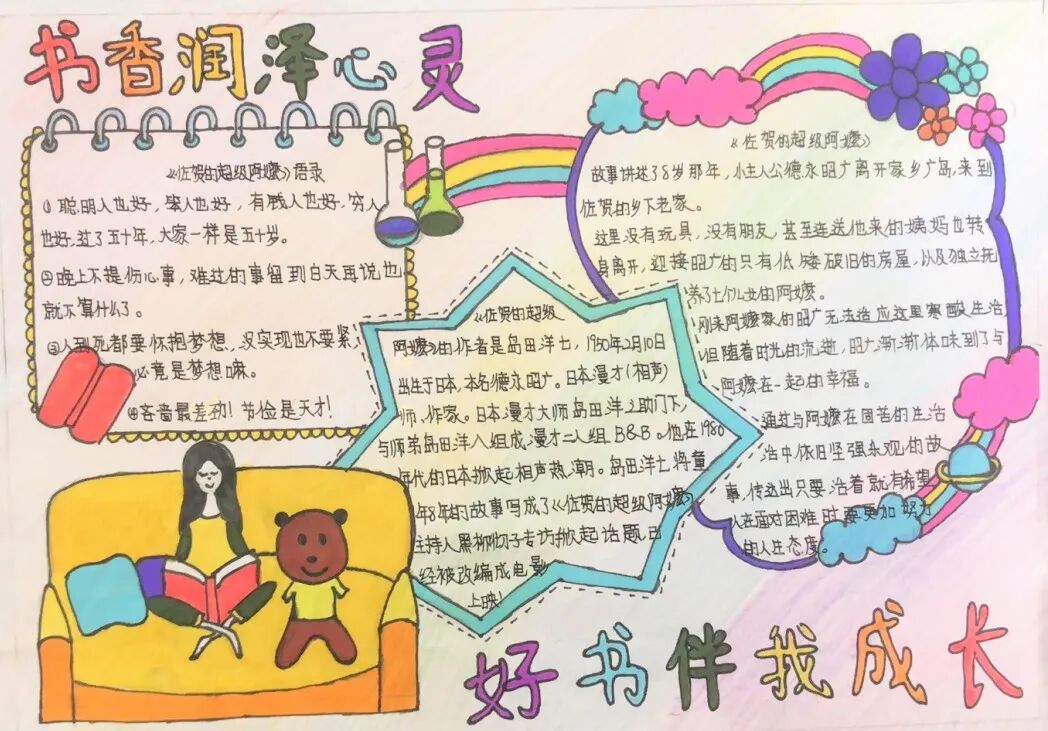 书香润泽心灵
《佐贺的超级阿嬷》语录
①聪明人也好，笨人也好，有钱人也好，穷人
也好，过了五十年，大家一样是五十岁。
②晚上不提伤心事，难过的事留到白天再说也
就不算什么了。
③人到死都要怀抱梦想，没实现也不要紧，
必竟是梦想嘛。
④吝啬最差劲！节俭是天才！
《佐贺的超级
阿嬷》的作者是岛田洋七，1950年2月10日
出生于日本，本名德永昭广。日本漫才（相声）
师、作家。日本漫才大师岛田洋之助门下，
与师弟岛田洋八组成漫才二人组B&B。他在1980
年代的日本掀起相声热潮。岛田洋七将童
年8年的故事写成了《佐贺的超级阿嬷》
主持人黑柳彻子专访掀起话题已
经被改编成电影
上映！
《佐贺的超级阿嬷》
故事讲述了8岁那年，小主人公德永昭广离开家乡广岛，来到
佐贺的乡下老家。
这里没有玩具，没有朋友，甚至连送他来的姨妈也转
身离开，迎接昭广的只有低矮破旧的房屋，以及独立抚
养了七个儿女的阿嬷。
刚来阿嬷家的昭广无法适应这里寒酸生活
但随着时光的流逝，昭广渐渐体味到了与
阿嬷在一起的幸福。
通过与阿嬷在困苦的生活
活中依旧坚强乐观的故
事，传达出只要活着就有希望
人在面对困难时要更加努力
的人生态度。
好书伴我成长